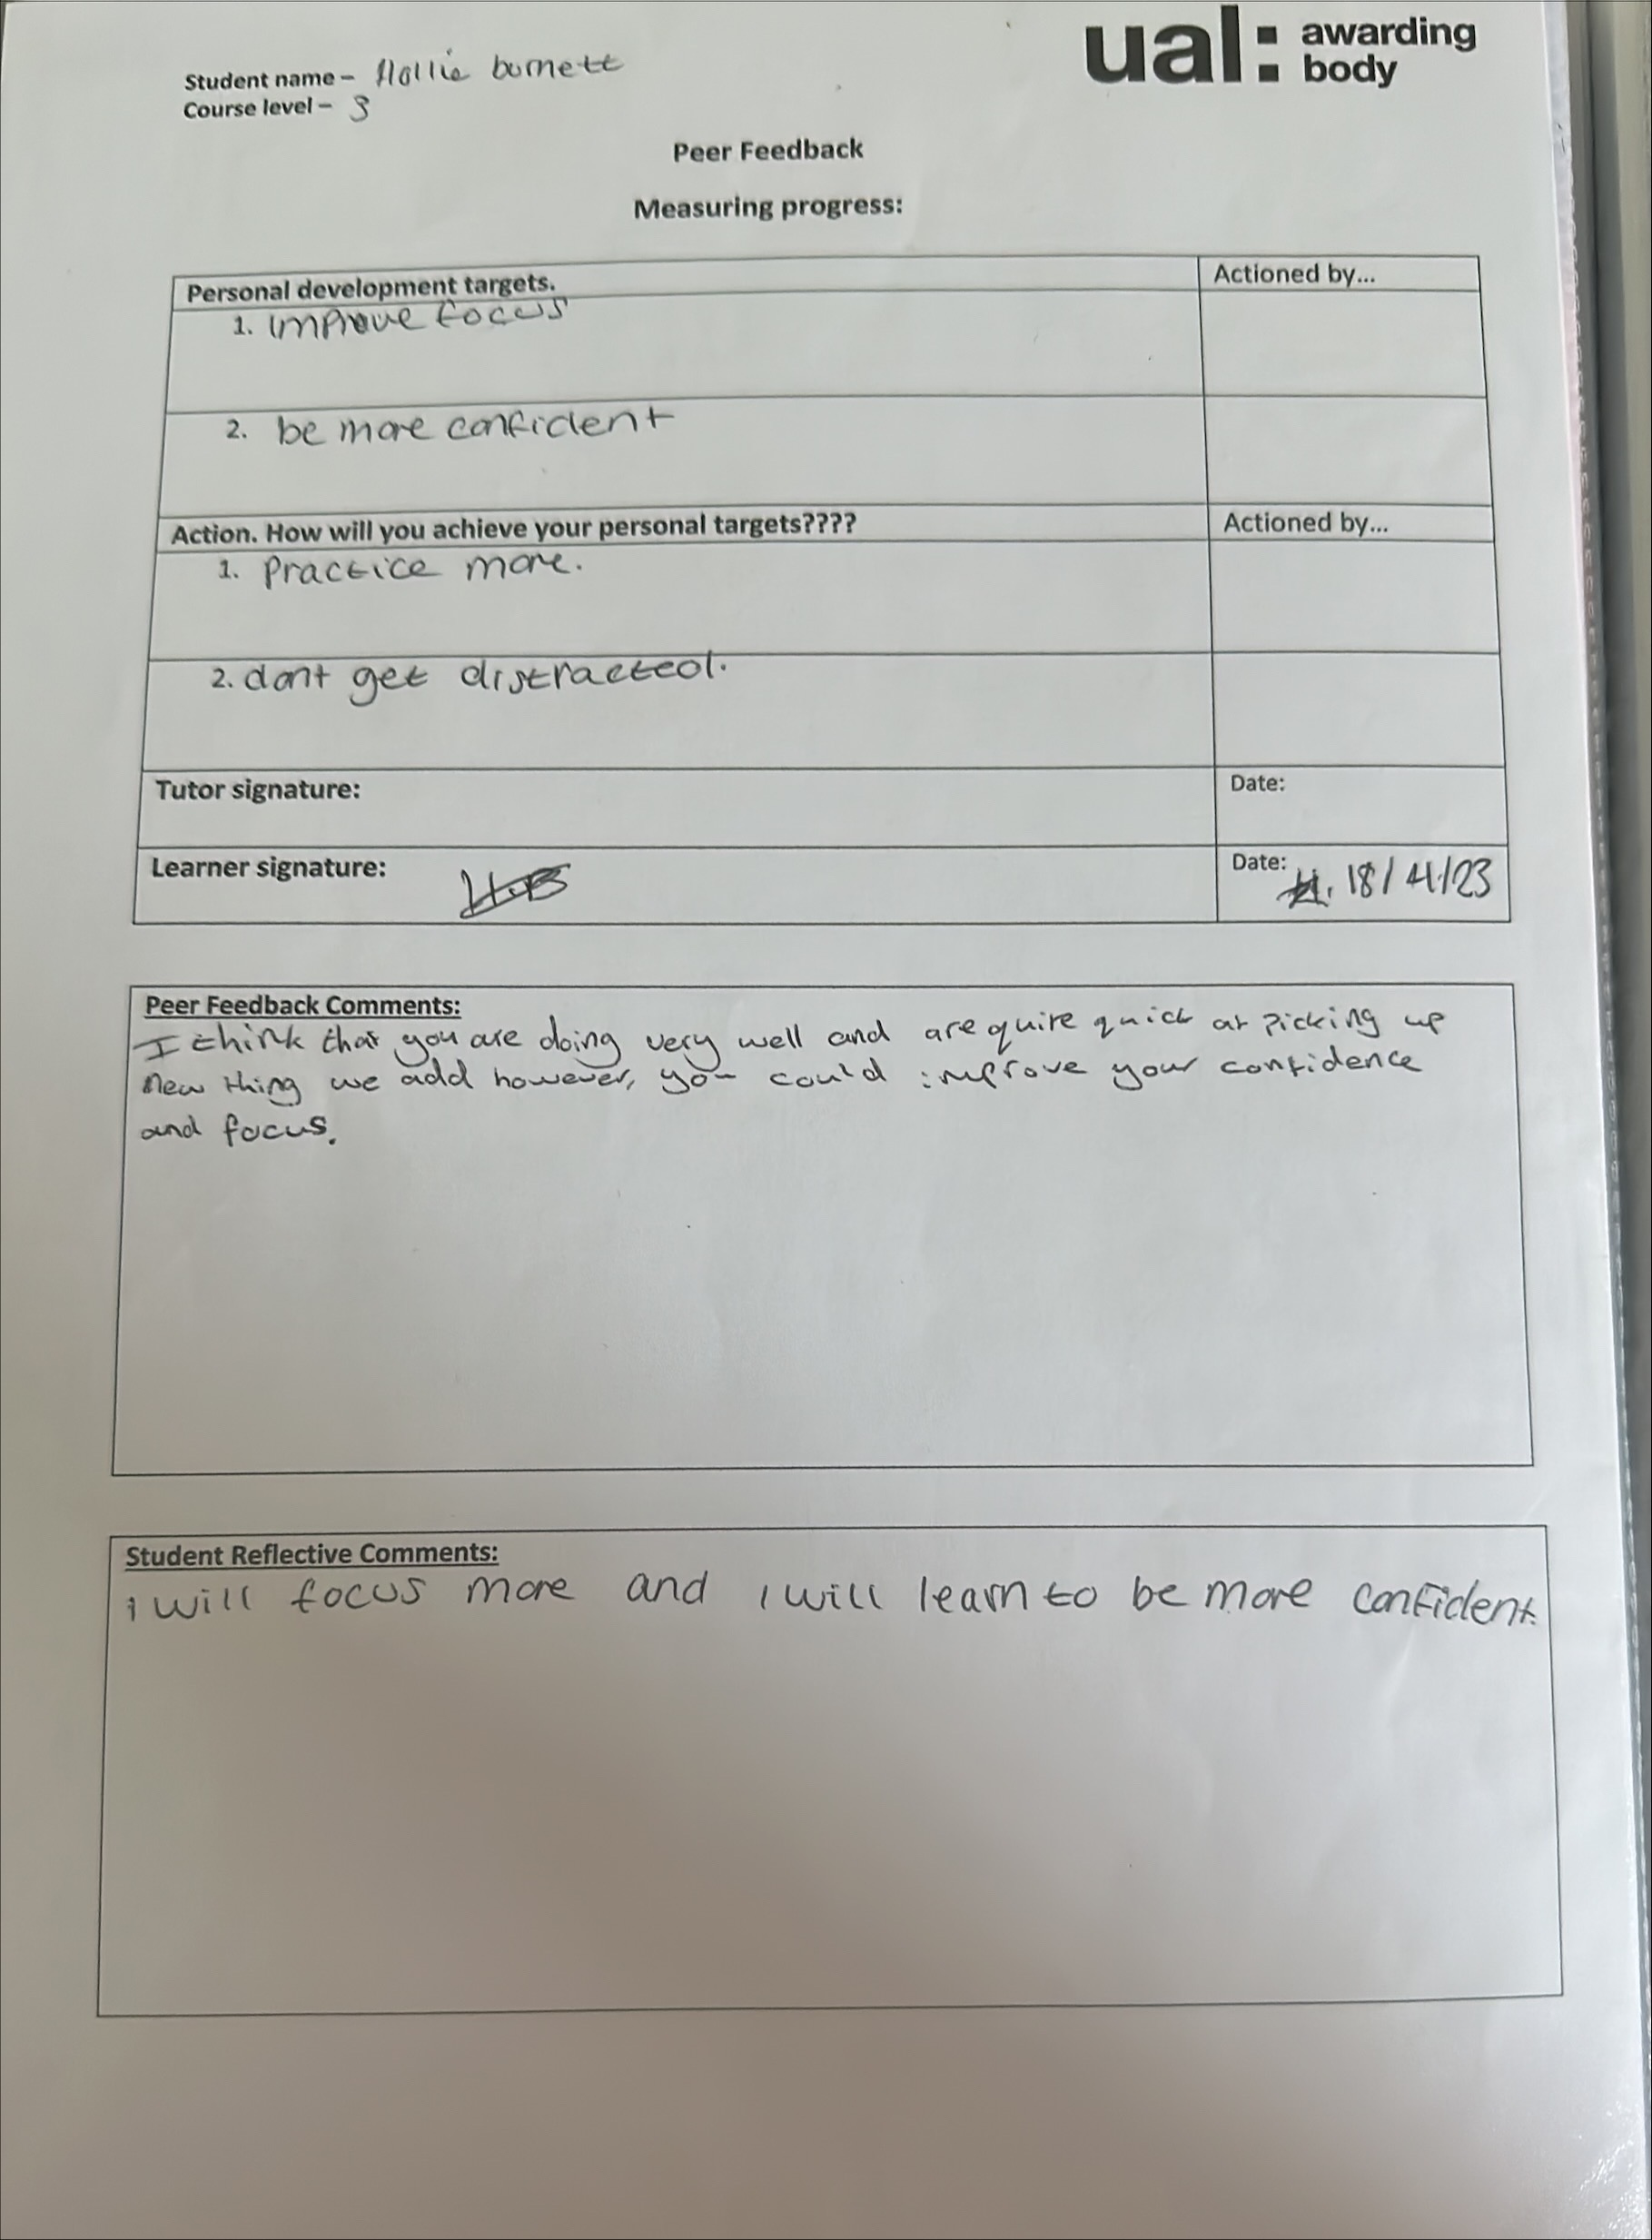 ual: awarding body
Student name – Hollie burnett
Course level – 3
Peer Feedback
Measuring progress:
Personal development targets.
Actioned by...
1. improve focus
2. be more confident
Action. How will you achieve your personal targets????
Actioned by...
1. Practice more.
2. dont get distracted.
Tutor signature:
Date:
Learner signature: H.B
Date: 18/4/23
Peer Feedback Comments:
I think that you are doing very well and are quite quick at picking up
new thing we add however, you could improve your confidence
and focus.
Student Reflective Comments:
i will focus more and i will learn to be more confident.